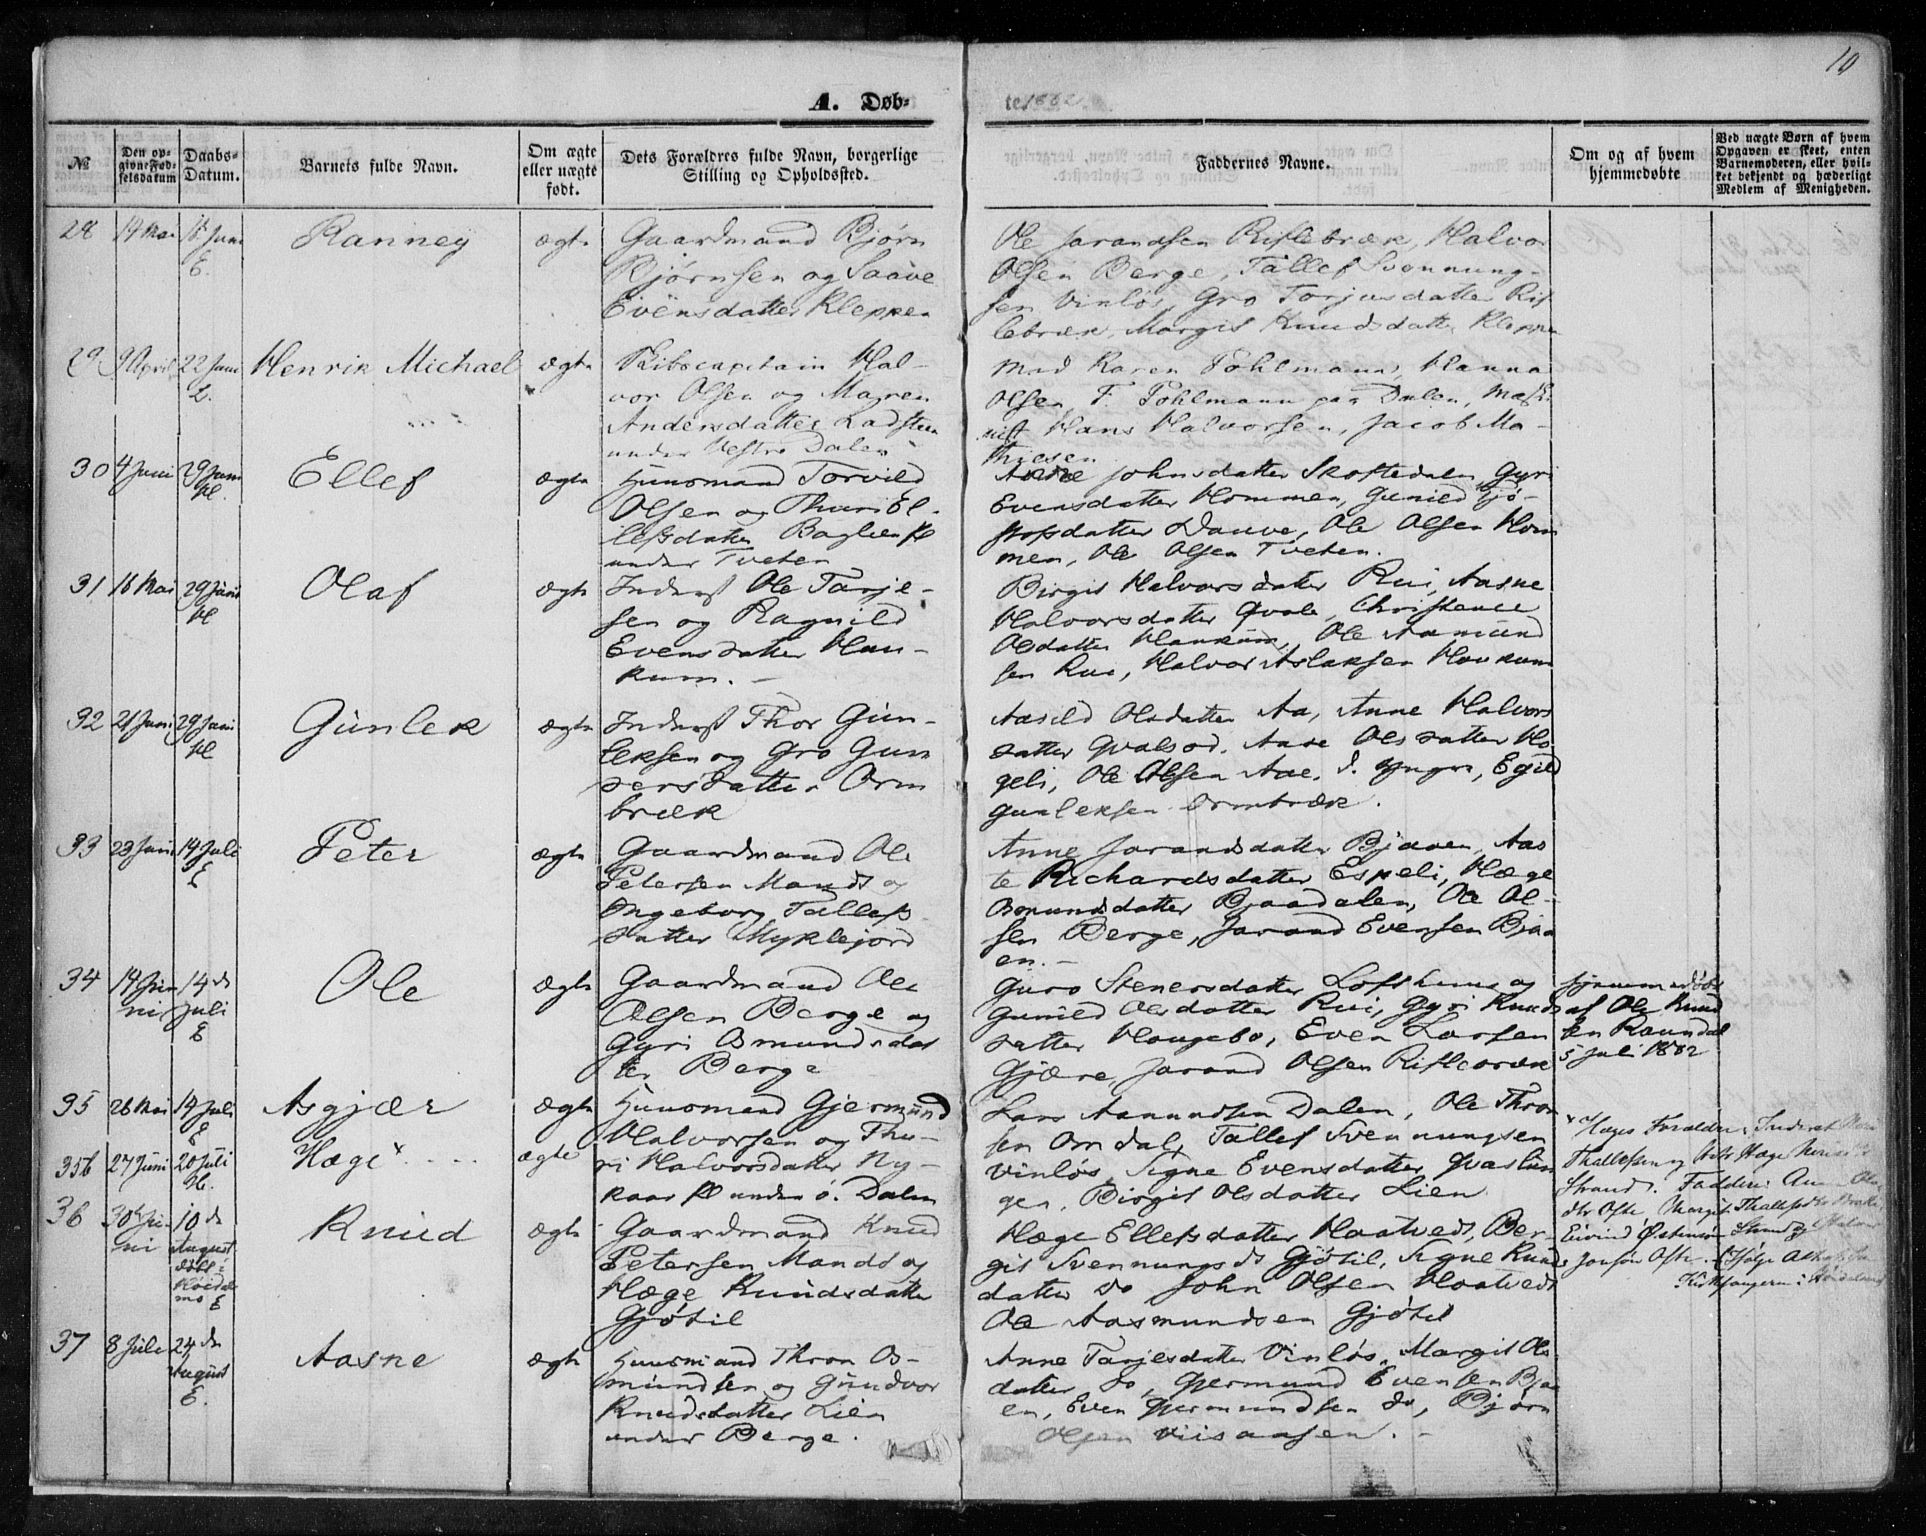 10
A. Døb-
te 1882
№
Den op-
givne Fød-
selsdatum
Daabs-
Datum.
Barnets fulde Navn.
Om ægte
eller uægte
født.
Dets Forældres fulde Navn, borgerlige
Stilling og Opholdssted.
Faddernes Navne.
Om og af hvem
hjemmedøbte
Ved uægte Børn af hvem
Opgaven er skeet, enten
Barnemoderen, eller hvil-
ket bekjendt og hæderligt
Medlem af Menigheden.
28
19 Mai
18 Juni
E.
Ranney
ægte
Gaardmand Bjørn
Bjørnsen og Saave
Evensdatter Kleppen
Ole Jarandsen Riflebræk, Halvor
Olsen Berge, Tallef Svennung-
sen Vinløs, Gro Torjusdatter Rif-
lebræk, Margit Knudsdatter Kleppen
29
9 April
22 Juni
E.
Henrik Michael
ægte
Skibscapitain Hal-
vor Olsen og Maren
Andersdatter Ladsteen
under Vestre Dalen
Mad Karen Pohlmann, Hanna
Olsen, F. Pohlmann paa Dalen,
Hans Halvorsen, Jacob Ma-
thiesen
30
4 Juni
29 Juni
Hl.
Ellef
ægte
Huusmand Torvild
Olsen og Thuri El-
lefsdatter
under Tveten
Johnsdatter Skoftedalen Gyri
Evensdatter Hommen, Gunild Gjø-
Dauve, Ole Olsen Hom
men, Ole Olsen Tveten.
31
16 Mai
29 Juni
Hl
Olaf
ægte
Inderst Ole Tarje-
sen og Ragnild
Evensdatter Hau-
kum. -
Birgit Halvorsdatter Rui, Aasne
Halvorsdatter Qvale, Christence
Olsdatter Haukum, Ole Aamund
sen Rui, Halvor Aslaksen Haukum
32
21 Juni
29 Juni
Hl
Gunlek
ægte
Inderst Thor Gun-
leksen og Gro Gun
Orm
bræk
Aasild Olsdatter Aa, Anne Halvors
datter Qvalsod, Aase Olsdatter Ho-
geli, Ole Olsen Aae, d. yngre, Egild
Gunleksen Ormbræk.
33
23 Juni
14 Juli
E
Peter
ægte
Gaardmand Ole
Petersen Mandt og
Ingeborg Tallefs
datter Myklejord
Anne Jarandsdatter Bjaaen, Aas
te Richardsdatter Espeli, Hæge
Osmundsdatter Bjaadalen, Ole Ol-
sen Berge, Jarand Evensen Bjaa
en. -
34
14 Jun
ni
14 de
Juli
E
Ole
ægte
Gaardmand Ole
Olsen Berge og
Gyri Osmundsdat
ter Berge
Guro Stenersdatter Lofthuus og
Gunild Olsdatter Rui, Gyri Knuds
datter Haugebo, Even Larsen
Gjære, Jarand Olsen Riflebræk
hjemmedøbt
af Ole Knud
sen Raundal
5 Juli 1882
35
26 Mai
14 Juli
E
Asgjær
ægte
Huusmand Gjermund
Halvorsen og Thu-
ri Halvorsdatter Ny-
kaas Pl under ø. Dalen
Lars Aamundsen Dalen, Ole Thron
sen Omdal, Tallef Svennungsen
Vinløs, Signe Evensdatter
gen, Birgit Olsdatter Lien
35b
27 Juni
20 Juli
Hl.
Hægi x
ægte
x Hæges Forældre: Inderst
Thallefsen og Hæge
Strand. Faddere:
Ofte, Margit
Eivind Østenssøn Strand, Halvor
Jonsøn Ofte.
Kirkesangeren i
36
30te Ju
ni
10 de
August
døbt i
Høidals
mo E
Knud
ægte
Gaardmand Knud
Petersen Mandt og
Hæge Knudsdatter
Gjøtil
Hæge Ellefsdatter Haatvedt, Ber-
git Svennungsdt Gjøtil, Signe Knuds
datter do John Olsen Haatvedt
Ole Aasmundsen Gjøtil
37
8 Juli
24 de
August
E.
Aasne
ægte
Huusmand Thron Os-
mundsen og Gundvor
Knudsdatter Lien
under Berge.
Anne Tarjesdatter Vinløs, Margit Ols
datter do, Gjermund Evensen Bjaa
en, Even Gjermundsen do, Bjørn
Olsen